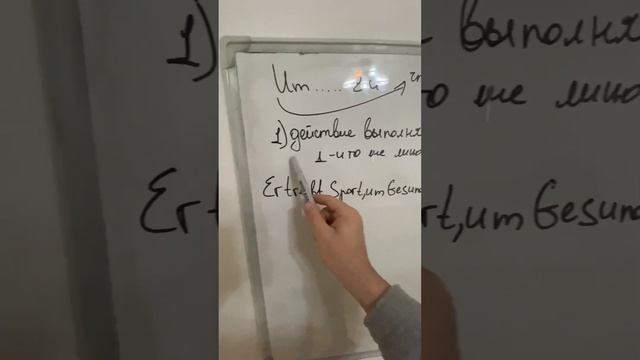 Um ..... zu
1) действие выполня
1-и то же лицо
Er Sport, um Gesun